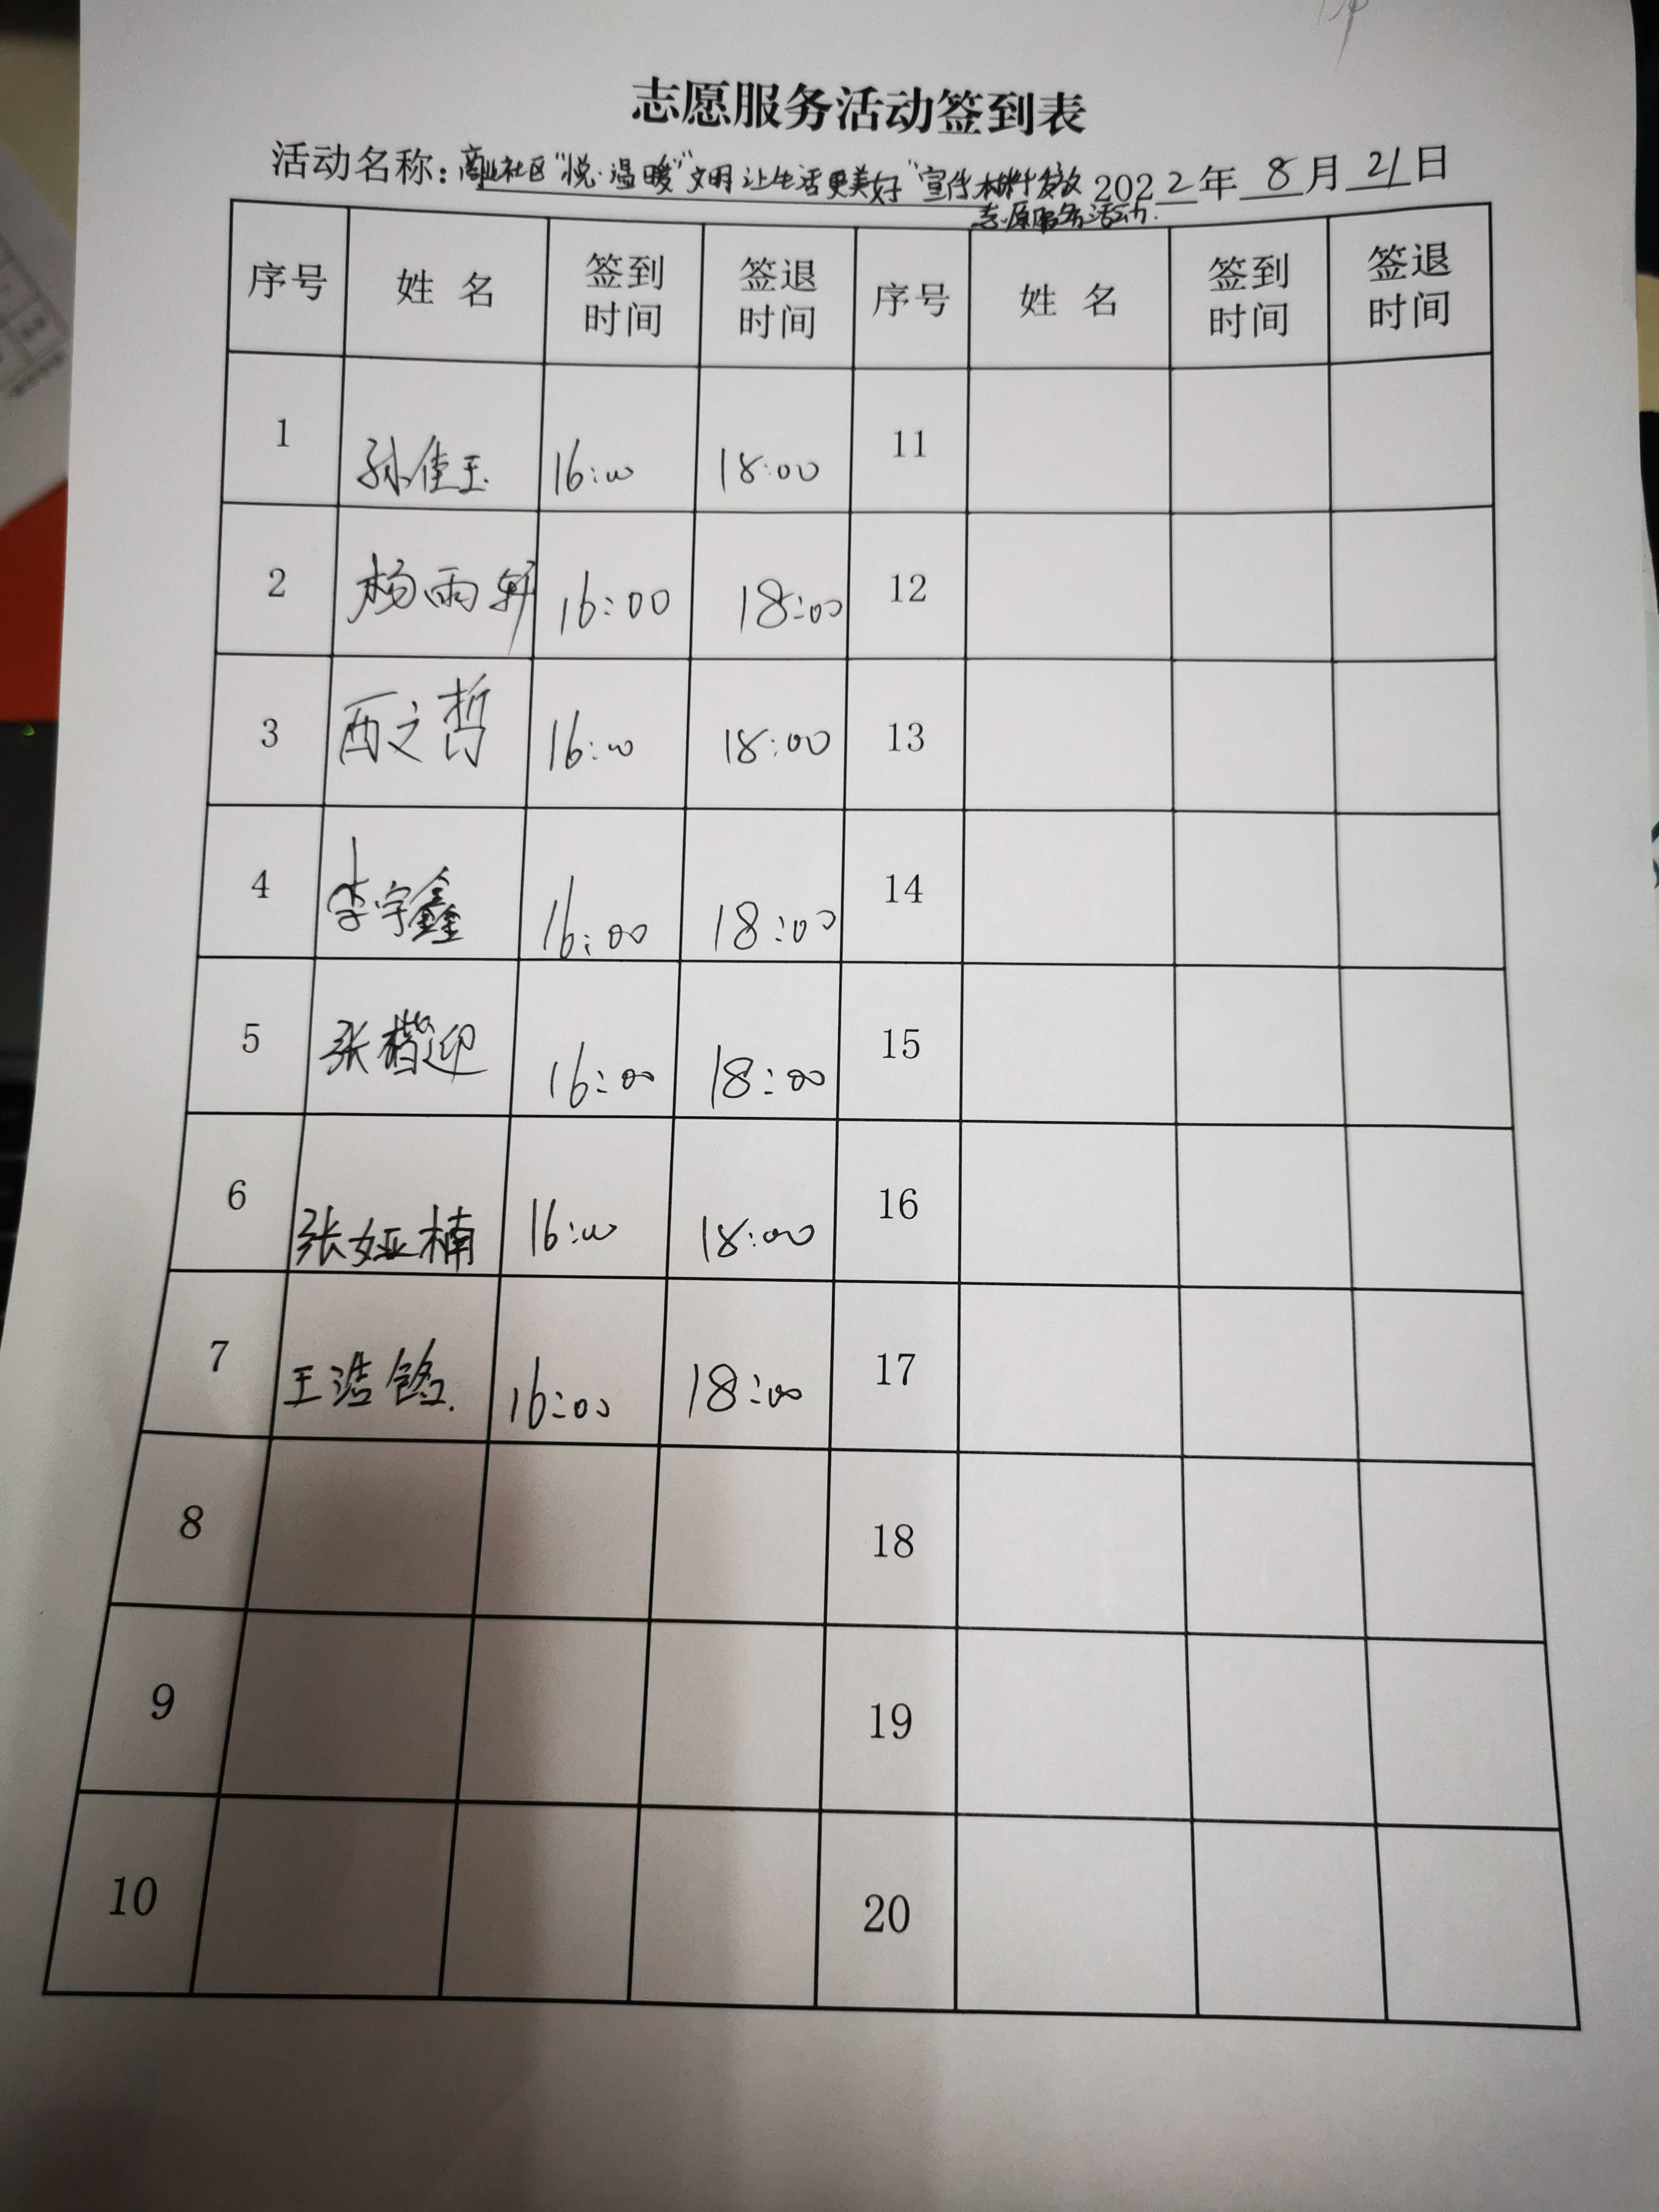 志愿服务活动签到表
活动名称:商业社区"悦·温暖""文明让生活更美好"宣传材料发放 2022年 8 月 21 日
志愿服务活动.
序号 姓 名 签到时间 签退时间 序号 姓 名 签到时间 签退时间
1 孙佳玉 16:00 18:00 11
2 杨雨轩 16:00 18:00 12
3 西之哲 16:00 18:00 13
4 李宇鑫 16:00 18:00 14
5 张楷迎 16:00 18:00 15
6 张娅楠 16:00 18:00 16
7 王浩铭. 16:00 18:00 17
8 18
9 19
10 20